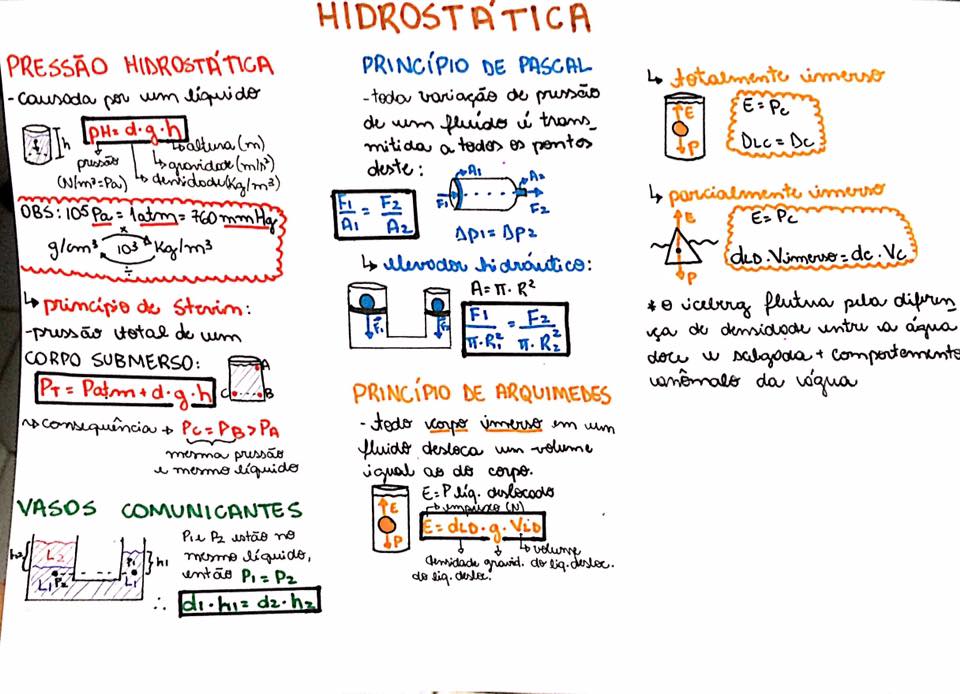 HIDROSTÁTICA
PRESSÃO HIDROSTÁTICA
- causada por um líquido
h
PH = d · g · h
altura (m)
pressão
gravidade (m/s²)
(N/m² = Pa)
densidade (Kg/m³)
OBS: 10⁵ Pa = 1 atm = 760 mmHg
x
g/cm³ 10³ Kg/m³
÷
↳ princípio de Stevin:
- pressão total de um
CORPO SUBMERSO:
PT = Patm + d · g · h
A
C B
↝ consequência → PC = PB > PA
mesma pressão
e mesmo líquido
VASOS COMUNICANTES
h2 L2 P1 h1
L1 P2 L1
P1 e P2 estão no
mesmo líquido,
então P1 = P2
∴ d1 · h1 = d2 · h2
PRINCÍPIO DE PASCAL
- toda variação de pressão
de um fluído é trans_
mitida a todos os pontos
deste:
A1 A2
F1 F2
F1/A1 = F2/A2
Δp1 = Δp2
↳ elevador hidráulico:
A = π · R²
F1 F2
F1/π·R1² = F2/π·R2²
PRINCÍPIO DE ARQUIMEDES
- todo corpo imerso em um
fluido desloca um volume
igual ao do corpo.
E = P líq. deslocado
empuxo (N)
E
P
E = dLD · g · VLD
volume
densidade gravid. do liq. desloc.
do liq. desloc.
↳ totalmente imerso
E
P
E = Pc
DLC = Dc
↳ parcialmente imerso
E
P
E = Pc
dLD · Vimerso = dc · Vc
* o iceberg flutua pela diferen
ça de densidade entre a água
doce e salgada + comportamento
anômalo da água